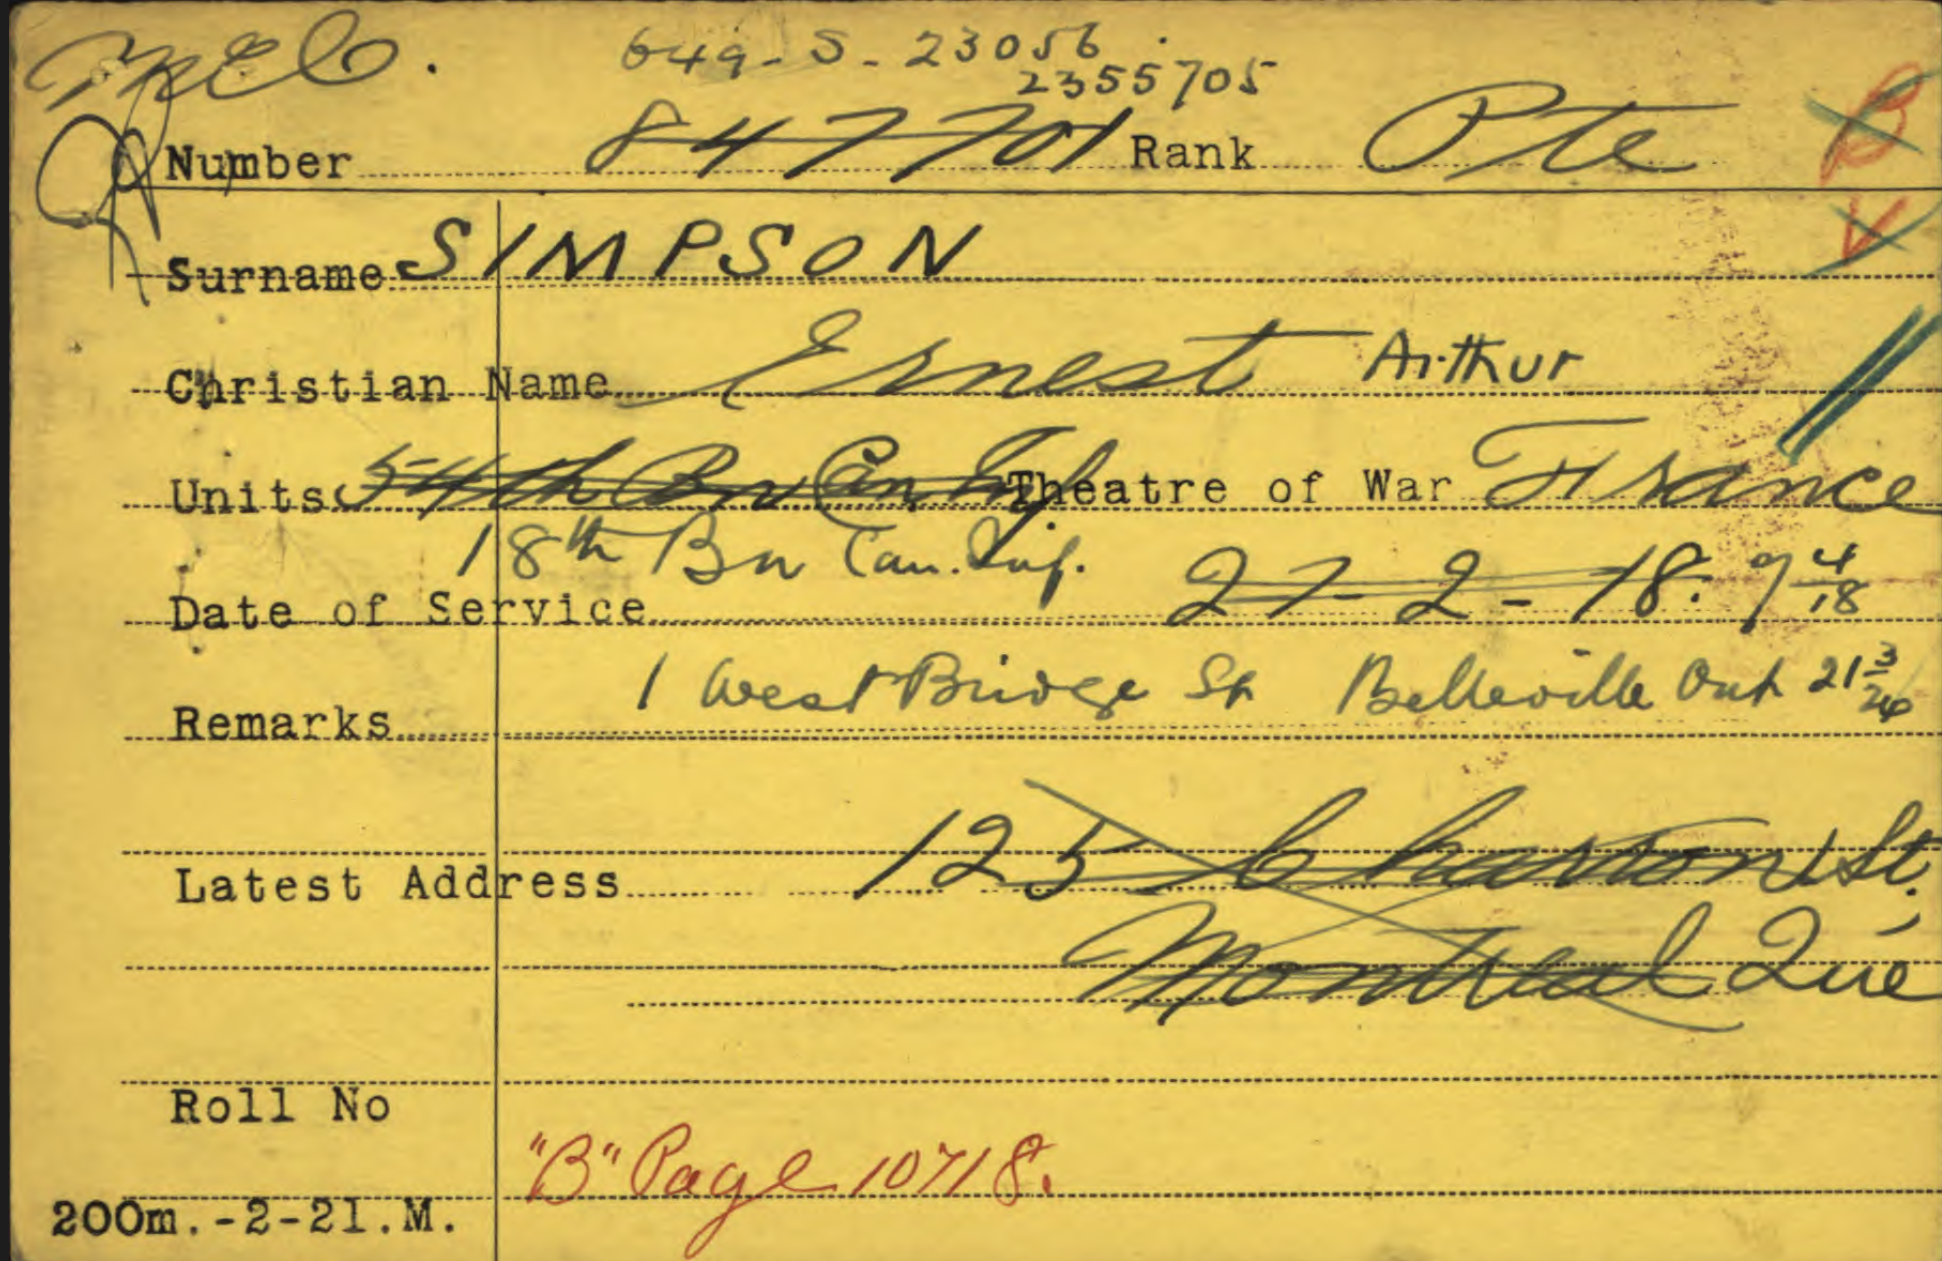 649-S-23056
2355705
Number 847701 Rank Pte
Surname SIMPSON
Christian Name Ernest Arthur
Units 54th Bn Can Inf Theatre of War France
18th Bn Can. Inf.
Date of Service 27-2-18. 7 4/18
Remarks 1 West Bridge St Belleville Ont 21 3/24
Latest Address 125 Charron St.
Montreal Que
Roll No
"B" Page 10718.
200m.-2-21.M.